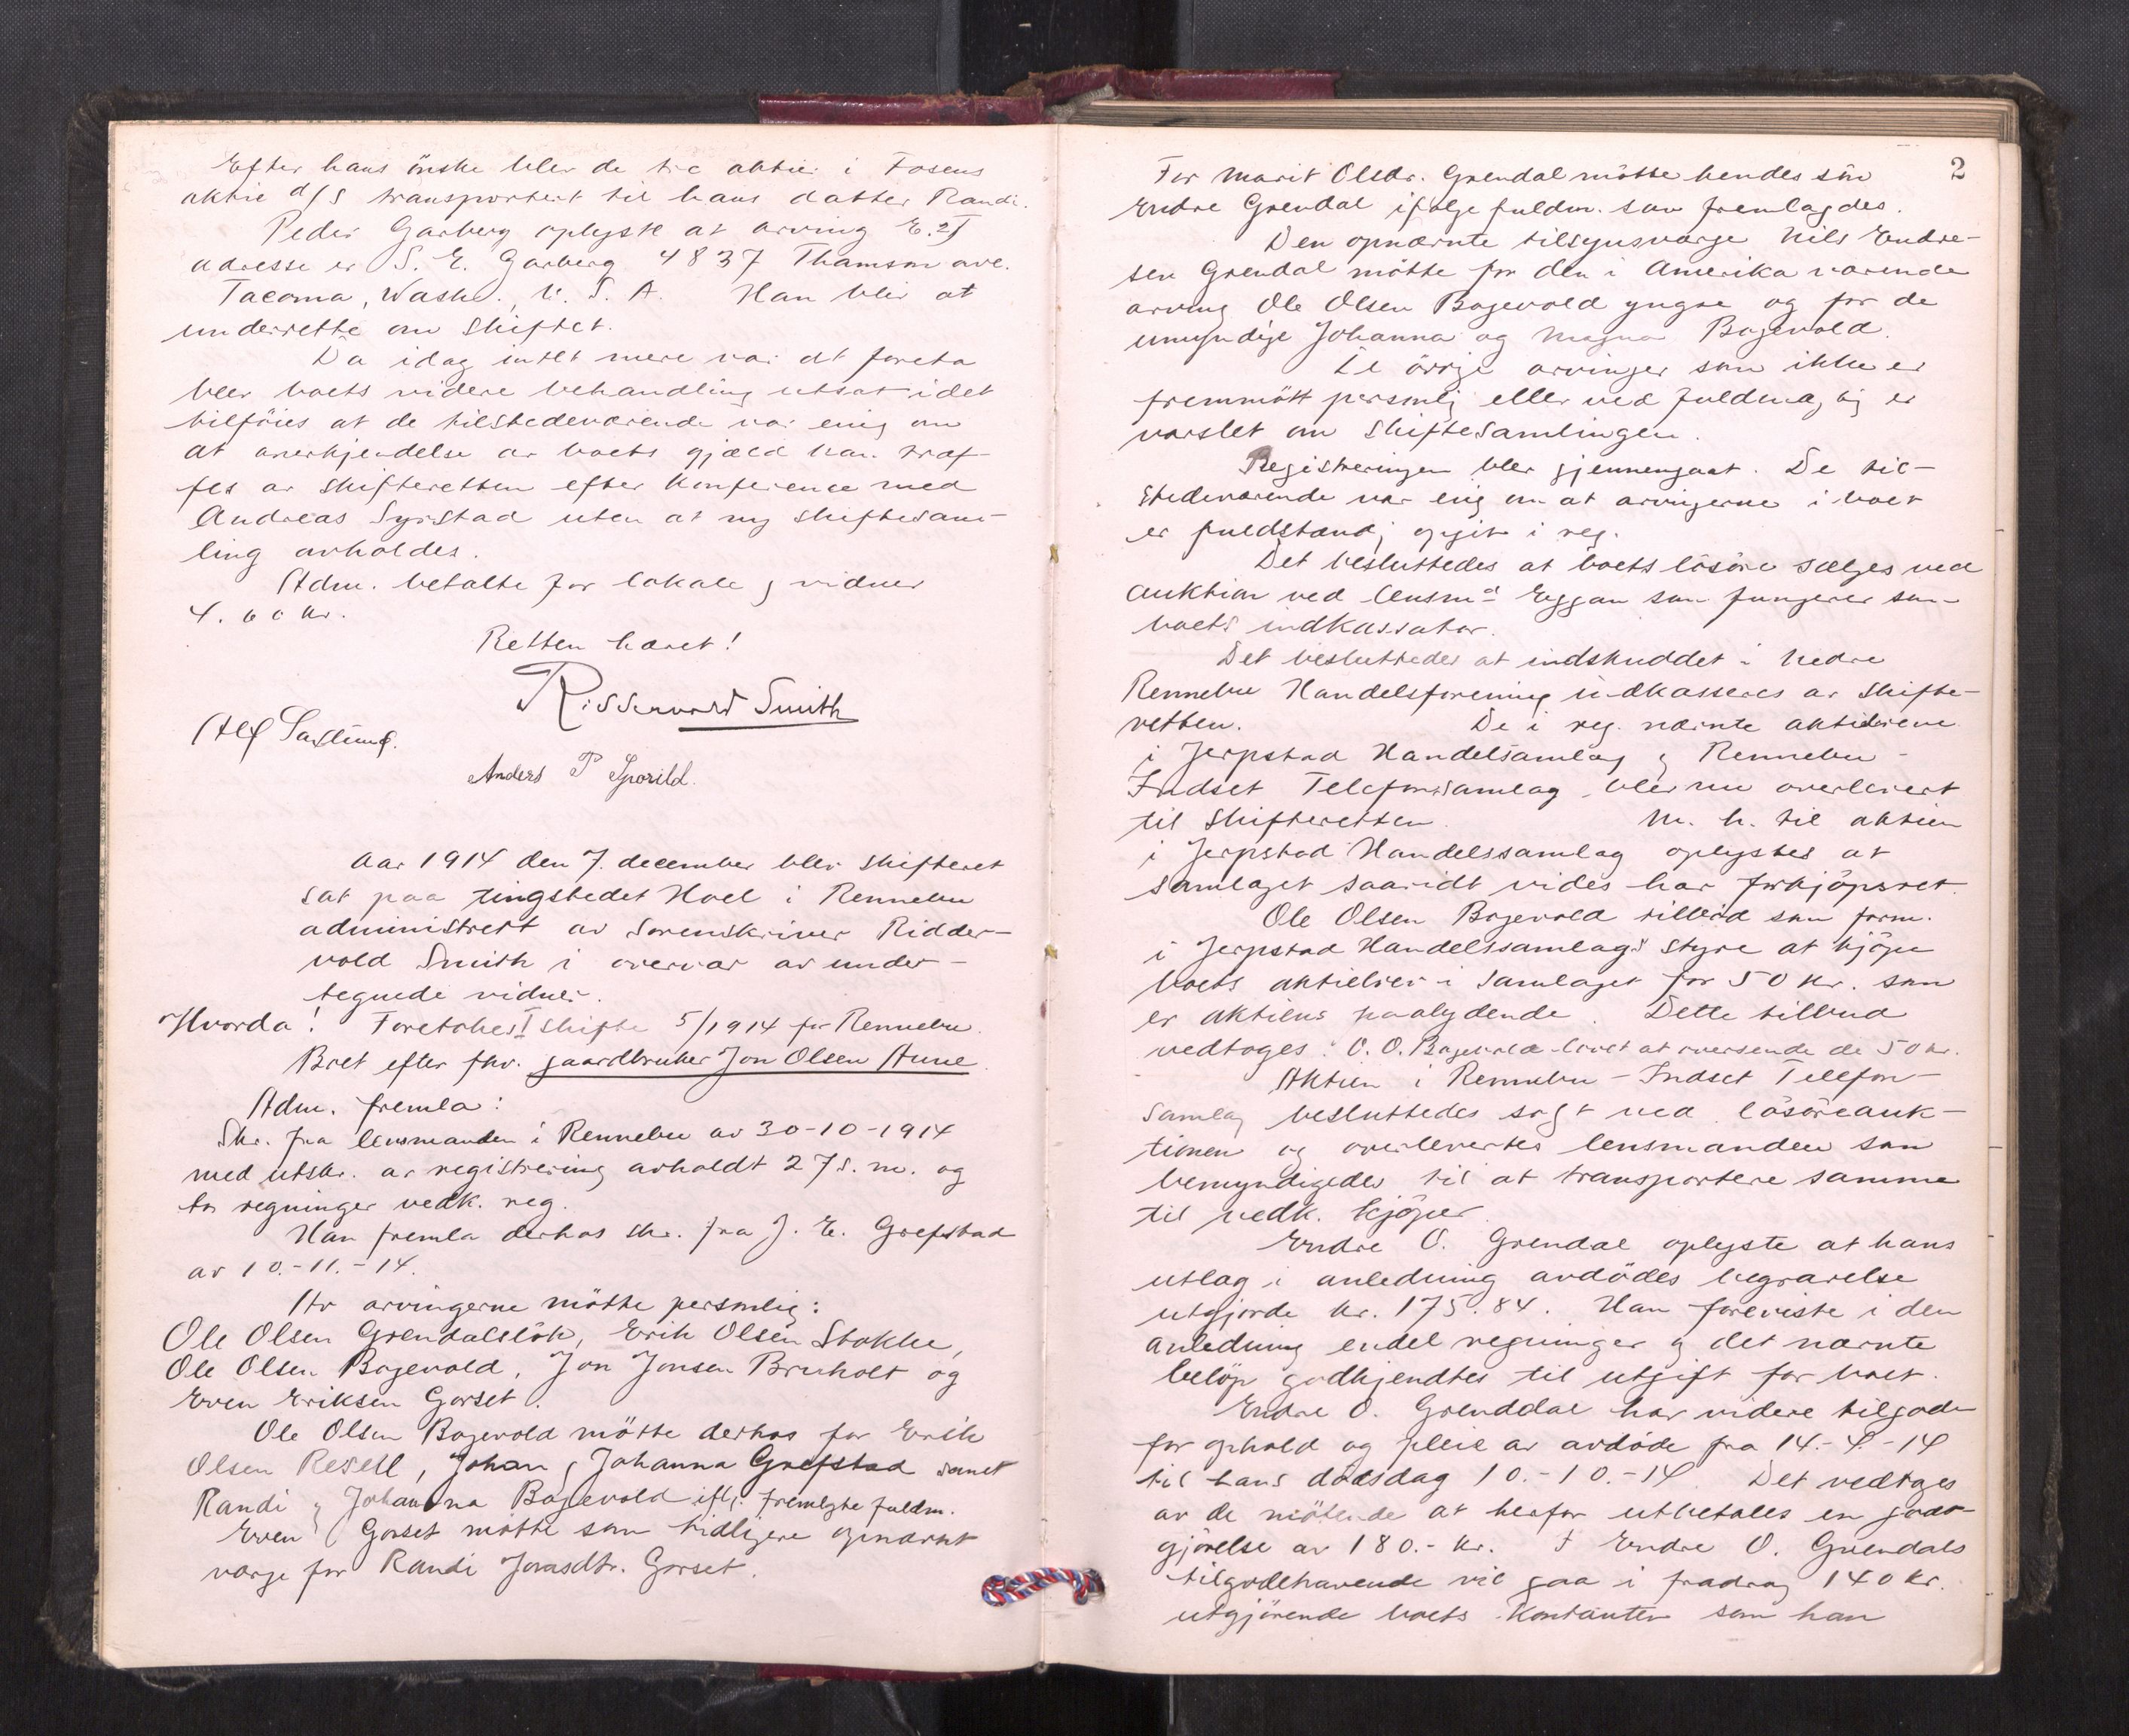 Efter hans önske blev de tre aktier i Fosens
aktie d/s transportert til hans datter Randi.
Peder Garberg oplyste at arving E.
adresse er S. E. Garberg 4837 Thamson ave.
Tacoma, Wash., U. S. A. Han blir at
underrette om skiftet.
Da idag intet mere var at foreta
blev boets videre behandling utsat idet
tilföies at de tilstedeværende var enig om
at anerkjendelse av boets gjæld kan træf-
fes av skifteretten efter konference med
Andreas Syrstad uten at ny skiftesam-
ling avholdes.
Adm. betalte for lokale og vidner
4.60 kr.
Retten hævet!
Riddervold Smith
Alf
Anders P Sporild.
Aar 1914 den 7. december blev skifteret
sat paa tingstedet Hoel i Rennebu
administrert av sorenskriver Ridder-
vold Smith i overvær av under-
tegnede vidner.
Hvorda! Foretokes I skifte 5/1914 for Rennebu.
Boet efter fhv. gaardbruker Jon Olsen Aune.
Adm. fremla:
Skr. fra lensmanden i Rennebu av 30-10-1914
med utskr. av registrering avholdt 27 s. m. og
to regninger vedk. reg.
Han fremla derhos skr. fra J. E. Grefstad
av 10.-11.-14.
Av arvingerne mötte personlig:
Ole Olsen Grendalslök, Erik Olsen Stokke,
Ole Olsen Bogevold, Jon Jonsen Bruholt og
Even Eriksen Gorset.
Ole Olsen Bogevold mötte derhos for Erik
Olsen Resell, Johan og Johanna Grefstad samt
Randi og Johanna Bogevold ifl. fremlagte fuldm.
Even Gorset mötte som tidligere opnævnt
værge for Randi Jonasdtr. Gorset.
2
For Marit Olsdr. Grendal mötte hendes sön
Endre Grendal ifölge fuldm. som fremlagdes.
Den opnævnte tilsynsværge Nils Endre-
sen Grendal mötte for den i Amerika værende
arving Ole Olsen Bogevold yngre og for de
umyndige Johanna og Magna Bogevold.
De övrige arvinger som ikke er
fremmött personlig eller ved fuldmægtig er
varslet om skiftesamlingen.
Registreringen blev gjennemgaat. De til-
stedeværende var enig om at arvingerne i boet
er fuldstændig opgit i reg.
Det besluttedes at boets lösöre sælges ved
auktion ved lensmd Eggan som fungerer som
boets indkassator.
Det besluttedes at indskuddet i Nedre
Rennebu Handelsforening indkasseres av skifte-
retten. De i reg. nævnte aktiebreve
i Jerpstad Handelsamlag og Rennebu-
Indset Telefonsamlag blev nu overlevert
til skifteretten. M. h. til aktien
i Jerpstad Handelssamlag oplystes at
samlaget saavidt vides har forkjöpsret.
Ole Olsen Bogevold tilböd som form.
i Jerpstad Handelssamlags styre at kjöpe
boets aktiebrev i samlaget for 50 kr. som
er aktiens paalydende. Dette tilbud
vedtoges. O. O. Bogevold lovet at oversende de 50 kr.
Aktien i Rennebu-Indset Telefon-
samlag besluttedes solgt ved lösöreauk-
tionen og overlevertes lensmanden som
bemyndigedes til at transportere samme
til vedk. kjöper.
Endre O. Grendal oplyste at hans
utlag i anledning avdödes begravelse
utgjorde kr. 175.84. Han foreviste i den
anledning endel regninger og det nævnte
belöp godkjendtes til utgift for boet.
Endre O. Grenddal har videre tilgode
for ophold og pleie av avdöde fra 14.-4.-14
til hans dödsdag 10.-10.-14. Det vedtoges
av de mötende at herfor utbetales en godt-
gjörelse av 180.- kr. I Endre O. Grendals
tilgodehavende vil gaa i fradrag 140 kr.
utgjörende boets kontanter som han